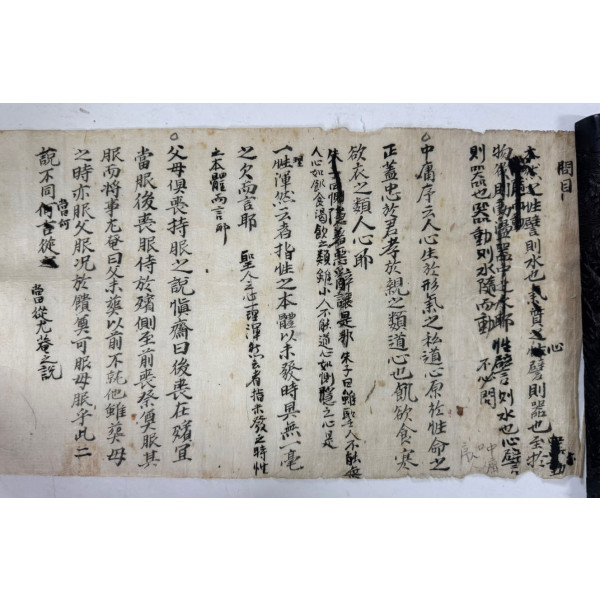 問目
本然之性譬則水也氣質之性譬則器也至於
物
性譬則水也心譬
則器也器動則水隨而動
不必問
心
中庸序云人心生於形氣之私道心原於性命之
正蓋忠於君孝於親之類道心也飢欲食寒
欲衣之類人心耶
是耶 朱子曰雖聖人不能無
人心如飢食渴飲之類雖小人不能無道心如惻隱之心是
一性渾然云者指性之本體以未發時具無一毫
之欠而言耶
聖人之心理渾然云者指未發之時性
之本體而言耶
父母俱喪持服之說愼齋曰後喪在殯宜
當服後喪服侍於殯側至前喪祭奠服其
服而將事尤菴曰父未葬以前不脫他雖葬母
之時亦服父服况於饋奠可服母服乎此二
說不同何當從
當從尤菴之說